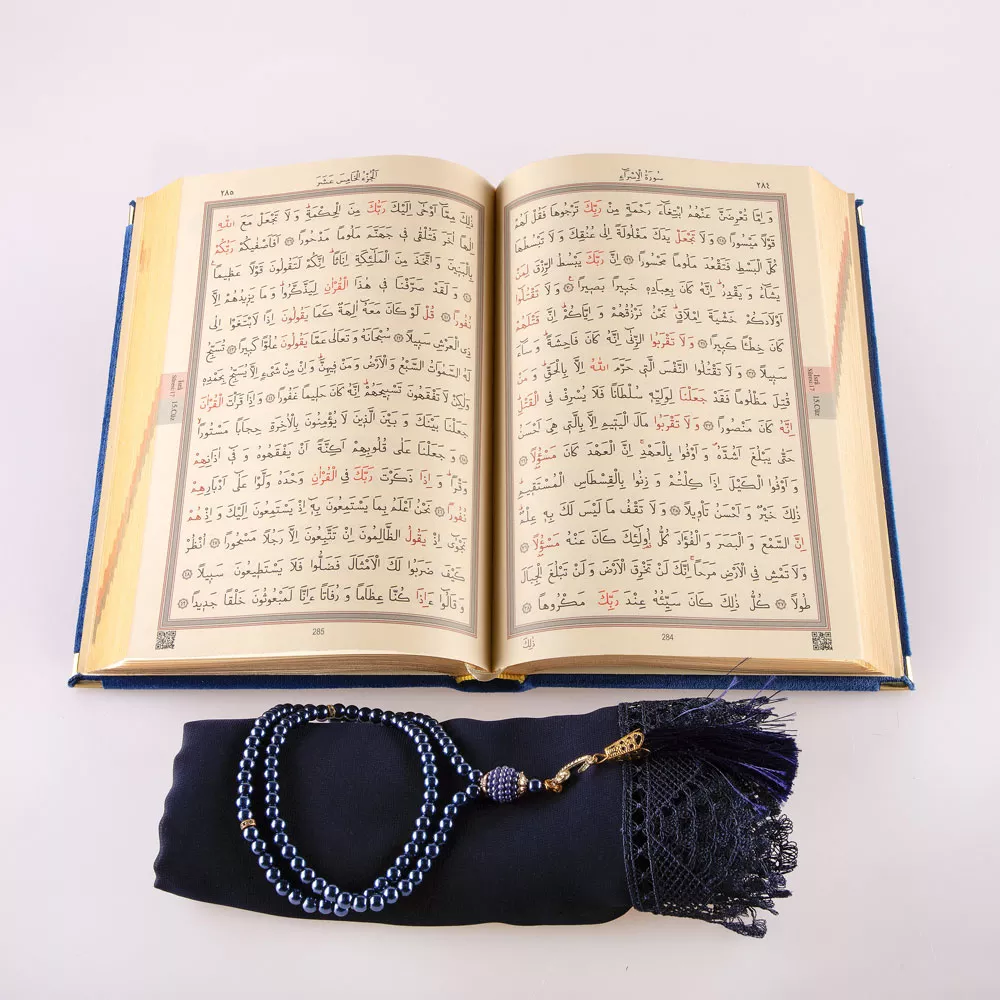 سُورَةُ الْاِسْرَٓاءِ
٢٨٤
وَ اِمَّا تُعْرِضَنَّ عَنْهُمُ ابْتِغَٓاءَ رَحْمَةٍ مِنْ رَبِّكَ تَرْجُوهَا فَقُلْ لَهُمْ
قَوْلًا مَيْسُورًا ﴿٢٨﴾ وَ لَا تَجْعَلْ يَدَكَ مَغْلُولَةً اِلٰى عُنُقِكَ وَ لَا تَبْسُطْهَا
كُلَّ الْبَسْطِ فَتَقْعُدَ مَلُومًا مَحْسُورًا ﴿٢٩﴾ اِنَّ رَبَّكَ يَبْسُطُ الرِّزْقَ لِمَنْ
يَشَٓاءُ وَ يَقْدِرُ ۜ اِنَّهُ كَانَ بِعِبَادِه۪ خَب۪يرًا بَص۪يرًا ﴿٣٠﴾ وَ لَا تَقْتُلُٓوا
اَوْلَادَكُمْ خَشْيَةَ اِمْلَاقٍ ۜ نَحْنُ نَرْزُقُهُمْ وَ اِيَّاكُمْ ۜ اِنَّ قَتْلَهُمْ
كَانَ خِطْـًٔا كَب۪يرًا ﴿٣١﴾ وَ لَا تَقْرَبُوا الزِّنٰٓى اِنَّهُ كَانَ فَاحِشَةً ۜ وَ سَٓاءَ
سَب۪يلًا ﴿٣٢﴾ وَ لَا تَقْتُلُوا النَّفْسَ الَّت۪ي حَرَّمَ اللّٰهُ اِلَّا بِالْحَقِّ ۜ وَ مَنْ
قُتِلَ مَظْلُومًا فَقَدْ جَعَلْنَا لِوَلِيِّه۪ سُلْطَانًا فَلَا يُسْرِفْ فِي الْقَتْلِ ۜ
اِنَّهُ كَانَ مَنْصُورًا ﴿٣٣﴾ وَ لَا تَقْرَبُوا مَالَ الْيَت۪يمِ اِلَّا بِالَّت۪ي هِيَ اَحْسَنُ
حَتّٰى يَبْلُغَ اَشُدَّهُ ۖ وَ اَوْفُوا بِالْعَهْدِ ۚ اِنَّ الْعَهْدَ كَانَ مَسْؤُ۫لًا ﴿٣٤﴾
وَ اَوْفُوا الْكَيْلَ اِذَا كِلْتُمْ وَ زِنُوا بِالْقِسْطَاسِ الْمُسْتَق۪يمِ ۜ
ذٰلِكَ خَيْرٌ وَ اَحْسَنُ تَأْو۪يلًا ﴿٣٥﴾ وَ لَا تَقْفُ مَا لَيْسَ لَكَ بِه۪ عِلْمٌ ۜ
اِنَّ السَّمْعَ وَ الْبَصَرَ وَ الْفُؤَادَ كُلُّ اُو۬لٰٓئِكَ كَانَ عَنْهُ مَسْؤُ۫لًا ﴿٣٦﴾
وَ لَا تَمْشِ فِي الْاَرْضِ مَرَحًا ۚ اِنَّكَ لَنْ تَخْرِقَ الْاَرْضَ وَ لَنْ تَبْلُغَ الْجِبَالَ
طُولًا ﴿٣٧﴾ كُلُّ ذٰلِكَ كَانَ سَيِّئُهُ عِنْدَ رَبِّكَ مَكْرُوهًا ﴿٣٨﴾
ذٰلِكَ
284
İsrâ
Sûresi:17
15.Cüz
اَلْجُزْءُ الْخَامِسَ عَشَرَ
٢٨٥
ذٰلِكَ مِمَّٓا اَوْحٰٓى اِلَيْكَ رَبُّكَ مِنَ الْحِكْمَةِ ۜ وَ لَا تَجْعَلْ مَعَ اللّٰهِ
اِلٰهًا اٰخَرَ فَتُلْقٰى ف۪ي جَهَنَّمَ مَلُومًا مَدْحُورًا ﴿٣٩﴾ اَفَاَصْفٰيكُمْ رَبُّكُمْ
بِالْبَن۪ينَ وَ اتَّخَذَ مِنَ الْمَلٰٓئِكَةِ اِنَاثًا ۜ اِنَّكُمْ لَتَقُولُونَ قَوْلًا عَظ۪يمًا ۟
﴿٤٠﴾ وَ لَقَدْ صَرَّفْنَا ف۪ي هٰذَا الْقُرْاٰنِ لِيَذَّكَّرُوا ۜ وَ مَا يَز۪يدُهُمْ اِلَّا
نُفُورًا ﴿٤١﴾ قُلْ لَوْ كَانَ مَعَهُٓ اٰلِهَةٌ كَمَا يَقُولُونَ اِذًا لَابْتَغَوْا اِلٰى
ذِي الْعَرْشِ سَب۪يلًا ﴿٤٢﴾ سُبْحَانَهُ وَ تَعَالٰى عَمَّا يَقُولُونَ عُلُوًّا كَب۪يرًا ﴿٤٣﴾ تُسَبِّحُ
لَهُ السَّمٰوَاتُ السَّبْعُ وَ الْاَرْضُ وَ مَنْ ف۪يهِنَّ ۜ وَ اِنْ مِنْ شَيْءٍ اِلَّا يُسَبِّحُ بِحَمْدِه۪
وَلٰكِنْ لَا تَفْقَهُونَ تَسْب۪يحَهُمْ ۜ اِنَّهُ كَانَ حَل۪يمًا غَفُورًا ﴿٤٤﴾ وَ اِذَا قَرَأْتَ الْقُرْاٰنَ
جَعَلْنَا بَيْنَكَ وَ بَيْنَ الَّذ۪ينَ لَا يُؤْمِنُونَ بِالْاٰخِرَةِ حِجَابًا مَسْتُورًا ۙ
﴿٤٥﴾ وَ جَعَلْنَا عَلٰى قُلُوبِهِمْ اَكِنَّةً اَنْ يَفْقَهُوهُ وَ ف۪ٓي اٰذَانِهِمْ
وَقْرًا ۜ وَ اِذَا ذَكَرْتَ رَبَّكَ فِي الْقُرْاٰنِ وَحْدَهُ وَلَّوْا عَلٰٓى اَدْبَارِهِمْ
نُفُورًا ﴿٤٦﴾ نَحْنُ اَعْلَمُ بِمَا يَسْتَمِعُونَ بِه۪ٓ اِذْ يَسْتَمِعُونَ اِلَيْكَ وَ اِذْ هُمْ
نَجْوٰٓى اِذْ يَقُولُ الظَّالِمُونَ اِنْ تَتَّبِعُونَ اِلَّا رَجُلًا مَسْحُورًا ﴿٤٧﴾ اُنْظُرْ
كَيْفَ ضَرَبُوا لَكَ الْاَمْثَالَ فَضَلُّوا فَلَا يَسْتَط۪يعُونَ سَب۪يلًا ﴿٤٨﴾
وَ قَالُٓوا ءَاِذَا كُنَّا عِظَامًا وَ رُفَاتًا ءَاِنَّا لَمَبْعُوثُونَ خَلْقًا جَد۪يدًا ﴿٤٩﴾
285
İsrâ
Sûresi:17
15.Cüz